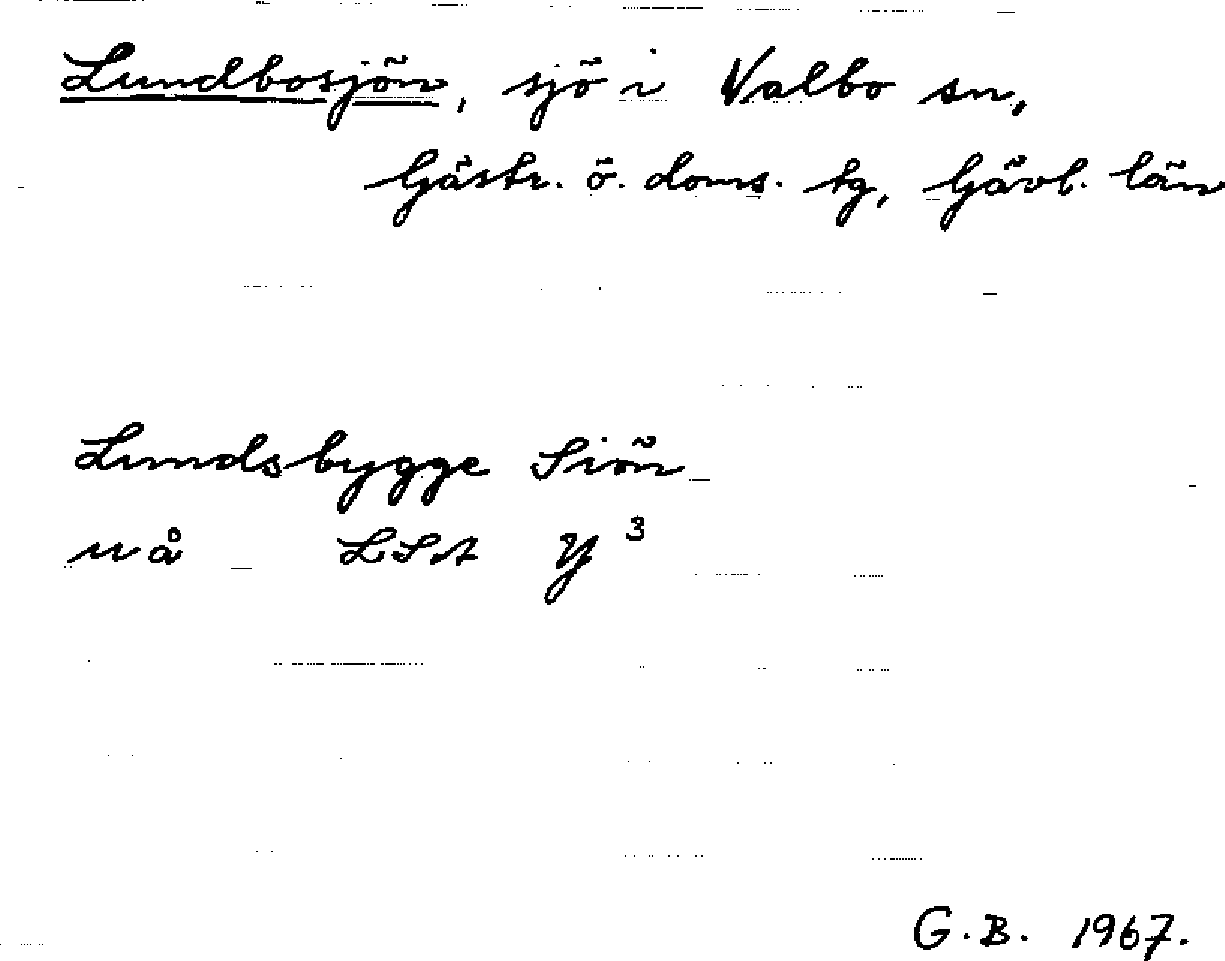 Lundbosjön, sjö i Valbo sn,
Gästr. ö. doms. tg, Gävl. län
Lundsbygge Siön
uå LSA Y³
G.B. 1967.